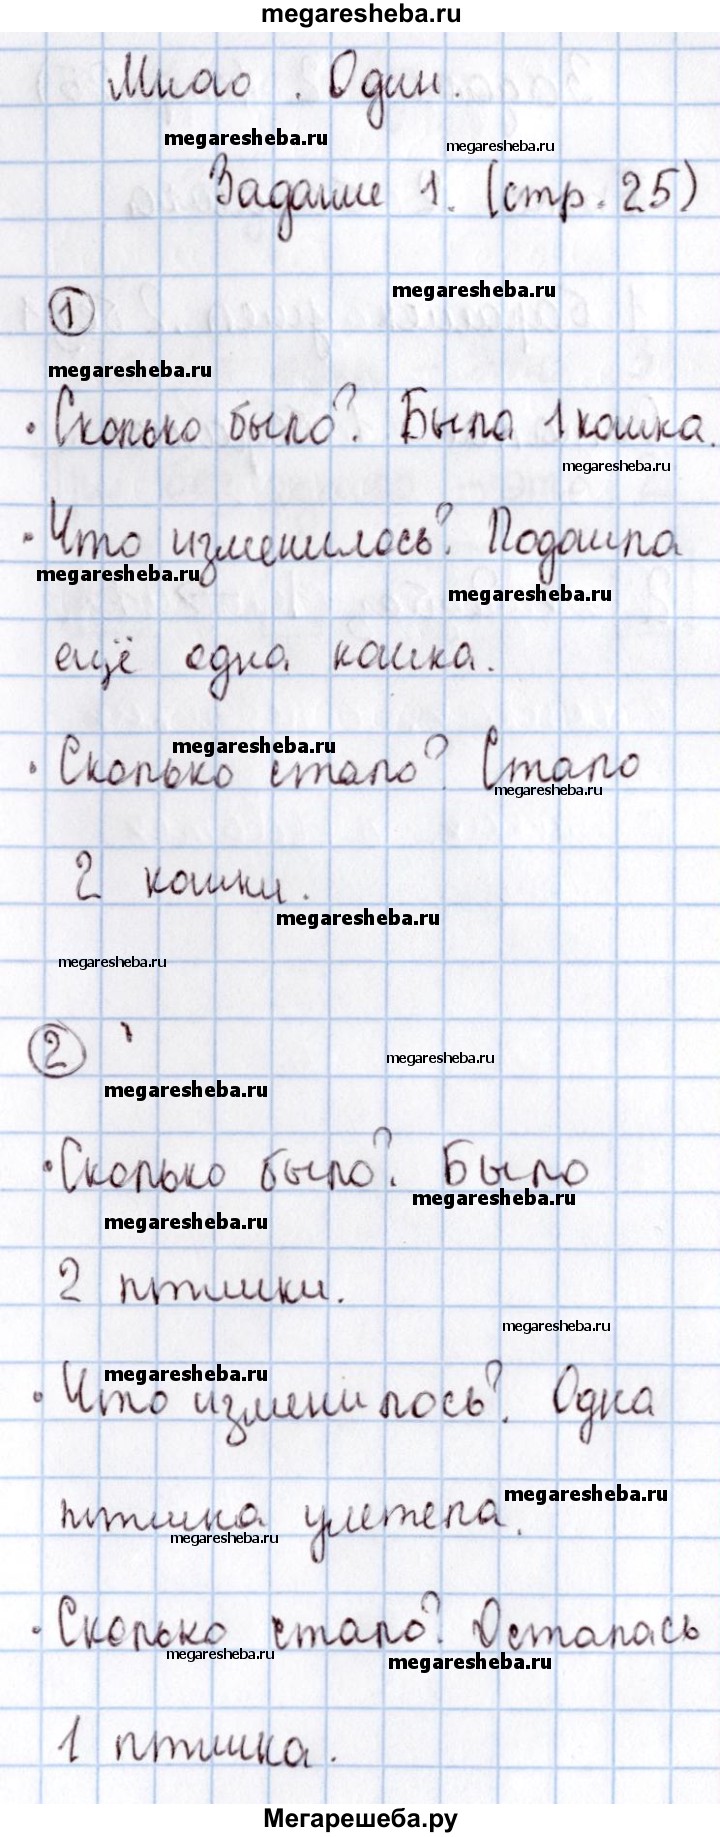 megaresheba.ru
Мнао. Один.
megaresheba.ru
megaresheba.ru
Задание 1. (стр. 25)
megaresheba.ru
1
megaresheba.ru
• Сколько было? Была 1 кошка.
megaresheba.ru
• Что изменилось? Подошла
megaresheba.ru
megaresheba.ru
ещё одна кошка.
megaresheba.ru
• Сколько стало? Стало
megaresheba.ru
2 кошки.
megaresheba.ru
megaresheba.ru
2
megaresheba.ru
megaresheba.ru
• Сколько было? Было
megaresheba.ru
megaresheba.ru
2 птички.
megaresheba.ru
megaresheba.ru
• Что изменилось? Одна
megaresheba.ru
птичка улетела.
megaresheba.ru
• Сколько стало? Осталась
megaresheba.ru
megaresheba.ru
1 птичка.
Мегарешеба.ру